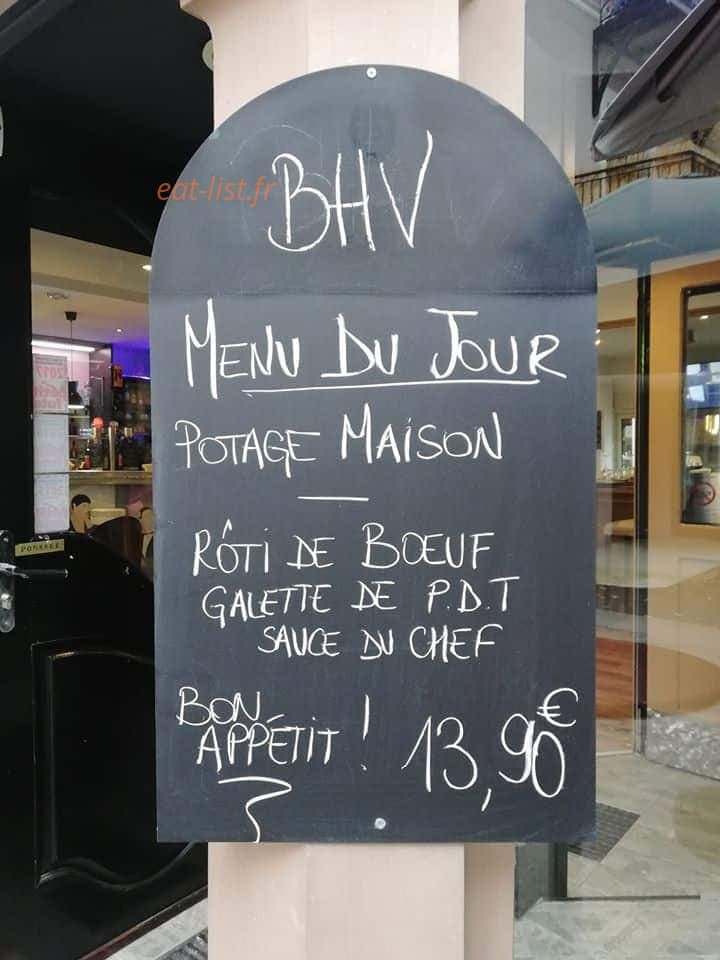 BHV
eat-list.fr
MENU DU JOUR
POTAGE MAISON
RÔTI DE BOEUF
GALETTE DE P.D.T
SAUCE DU CHEF
BON
APPÉTIT !
13,90€
POUSSEZ
2017